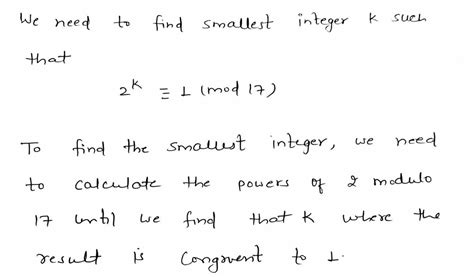 We need to find smallest integer k such
that
2^k ≡ 1 (mod 17)
To find the smallest integer, we need
to calculate the powers of 2 modulo
17 until we find that k where the
result is congruent to 1.